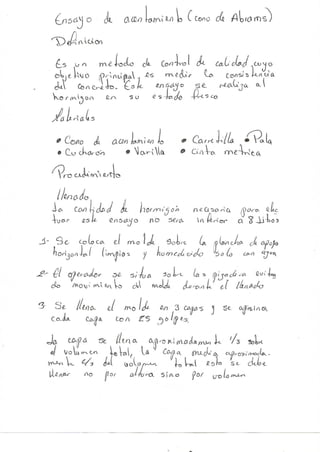 Ensayo de asentamiento (cono de Abrams)
Definicion
Es un metodo de control de calidad cuyo
objetivo principal, es medir la consistencia
del concreto. Este ensayo se realiza al
hormigon en su estado fresco
Materiales
• Cono de asentamiento • Carretilla • Pala
• Cucharón • Varilla • cinta metrica
Procedimiento
llenado
La cantidad de hormigón necesaria para efec
tuar este ensayo no sera inferior a 8 litros
1- Se coloca el molde sobre la plancha de apoyo
horizontal limpios y humedecido solo con agua
2- El operador se situa sobre las pisaderas evitan
do movimiento del molde durante el llenado
3. Se llena el molde en 3 capas y se apisona
cada capa con 25 golpes.
La capa se llena aproximadamente 1/3 sobre
el volumen total, la capa media aproximada-
mente 2/3 del volumen total esto se debe
llenar no por altura sino por volumen